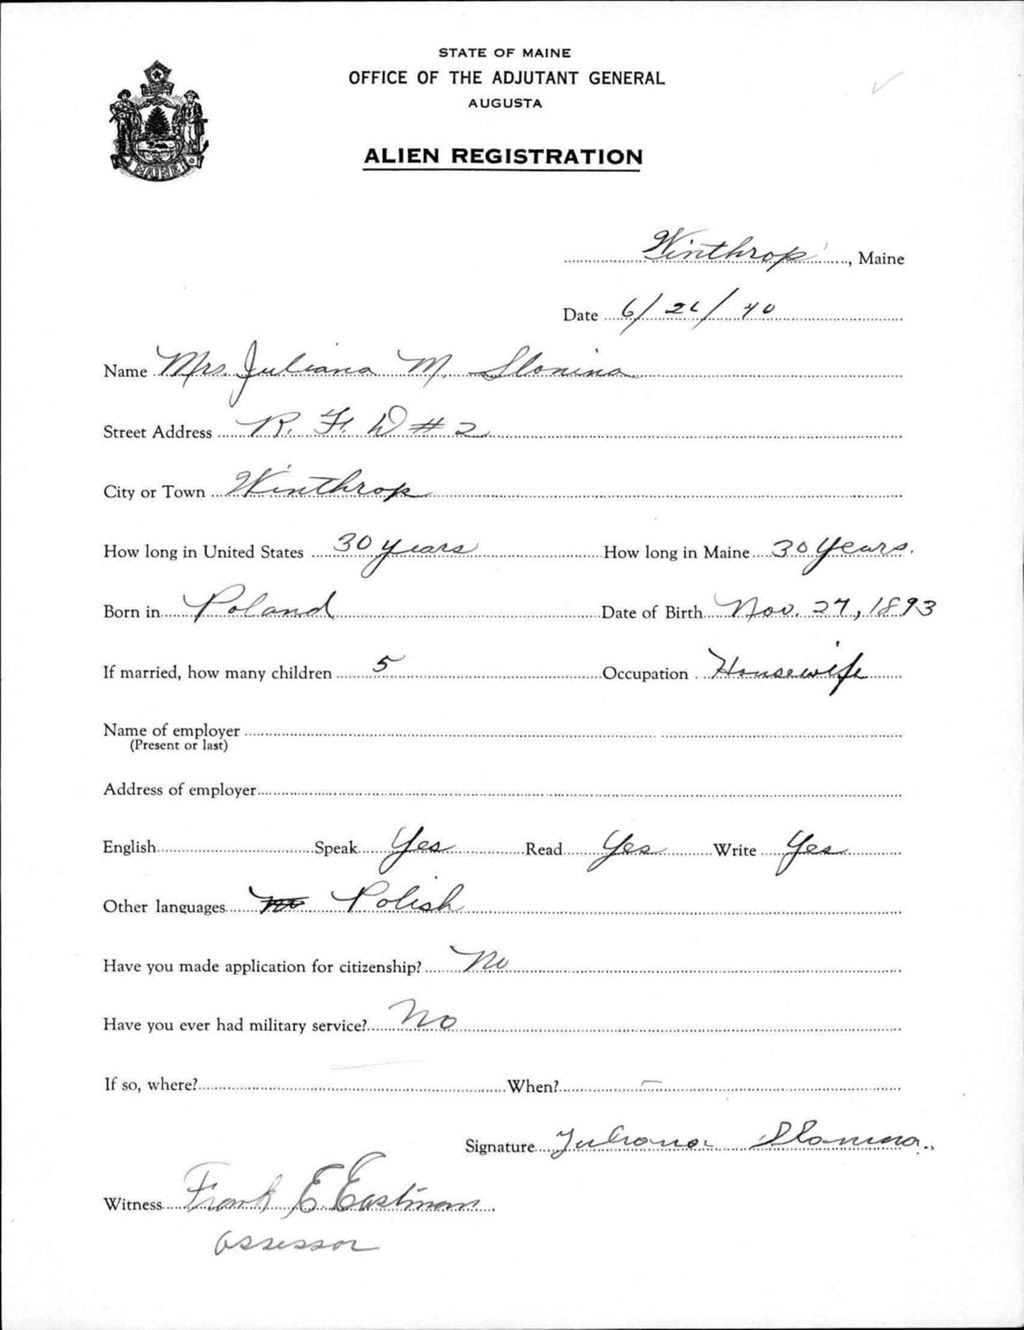 STATE OF MAINE
OFFICE OF THE ADJUTANT GENERAL
AUGUSTA
ALIEN REGISTRATION
MAINE
Winthrop, Maine
Date 6/26/40
Name Mrs. Juliana M. Slonina
Street Address R. F. D #2
City or Town Winthrop
How long in United States 30 years How long in Maine 30 Years.
Born in Poland Date of Birth Nov. 27, 1893
If married, how many children 5 Occupation Housewife
Name of employer
(Present or last)
Address of employer
English Speak Yes Read Yes Write Yes
Other languages Polish
Have you made application for citizenship? No
Have you ever had military service? No
If so, where? When? —
Signature Juliana Slonina
Witness Frank E. Eastman
assessor